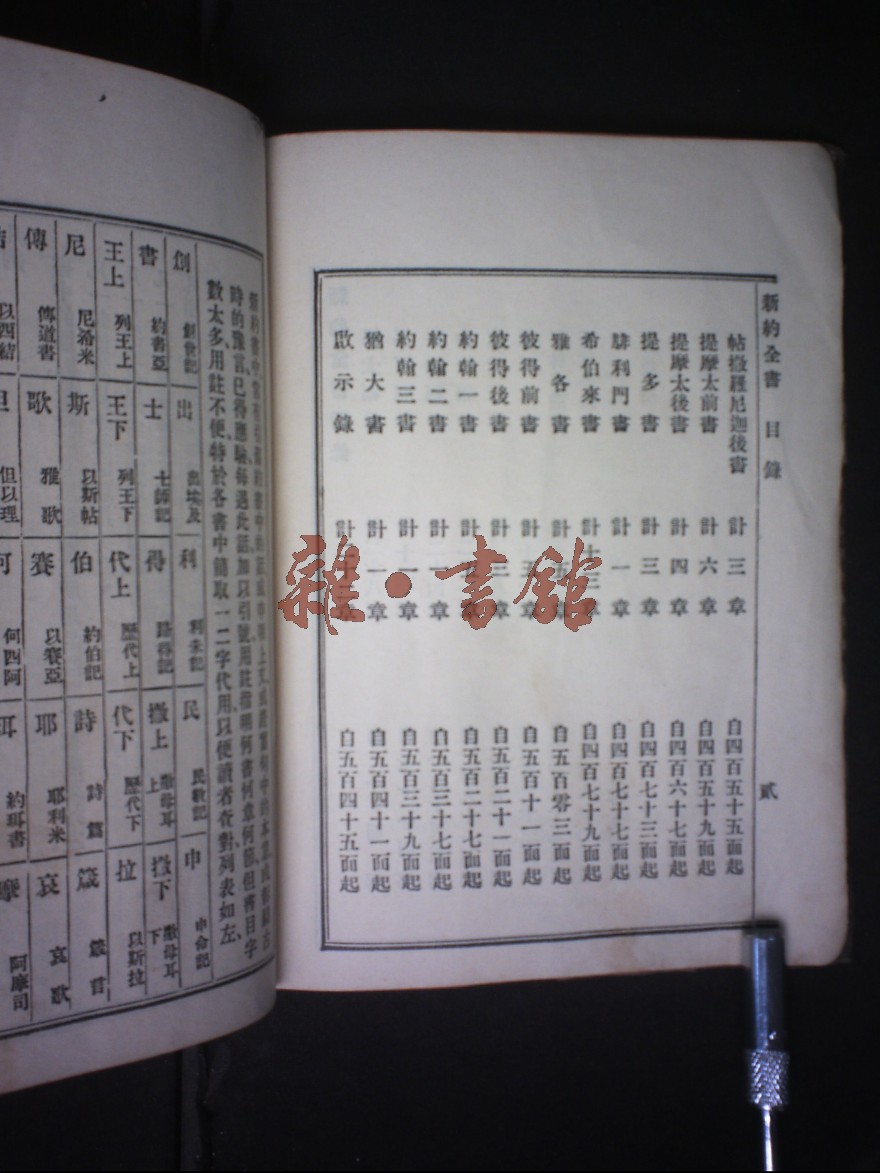 新約全書 目錄 貳
帖撒羅尼迦後書 計三章 自四百五十五面起
提摩太前書 計六章 自四百五十九面起
提摩太後書 計四章 自四百六十七面起
提多書 計三章 自四百七十三面起
腓利門書 計一章 自四百七十七面起
希伯來書 計十三章 自四百七十九面起
雅各書 計五章 自五百零三面起
彼得前書 計五章 自五百十一面起
彼得後書 計三章 自五百二十一面起
約翰一書 計章 自五百二十七面起
約翰二書 計一章 自五百三十七面起
約翰三書 計一章 自五百三十九面起
猶大書 計一章 自五百四十一面起
啟示錄 計章 自五百四十五面起
雜·書館
新約書中
時的豫言、已得應驗、每遇此話、加以引號、用註指明何書何章何節、但將目字
數太多、用註不便、特於各書中摘取一二字代用、以便讀者查對、列表如左、
創 創世記 出 出埃及 利 利未記 民 民數記 申 申命記
書 約書亞 士 士師記 得 路得記 撒上 撒母耳上 撒下 撒母耳下
王上 列王上 王下 列王下 代上 歷代上 代下 歷代下 拉 以斯拉
尼 尼希米 斯 以斯帖 伯 約伯記 詩 詩篇 箴 箴言
傳 傳道書 歌 雅歌 賽 以賽亞 耶 耶利米 哀 哀歌
以西結 但以理 何西阿 約珥書 阿摩司